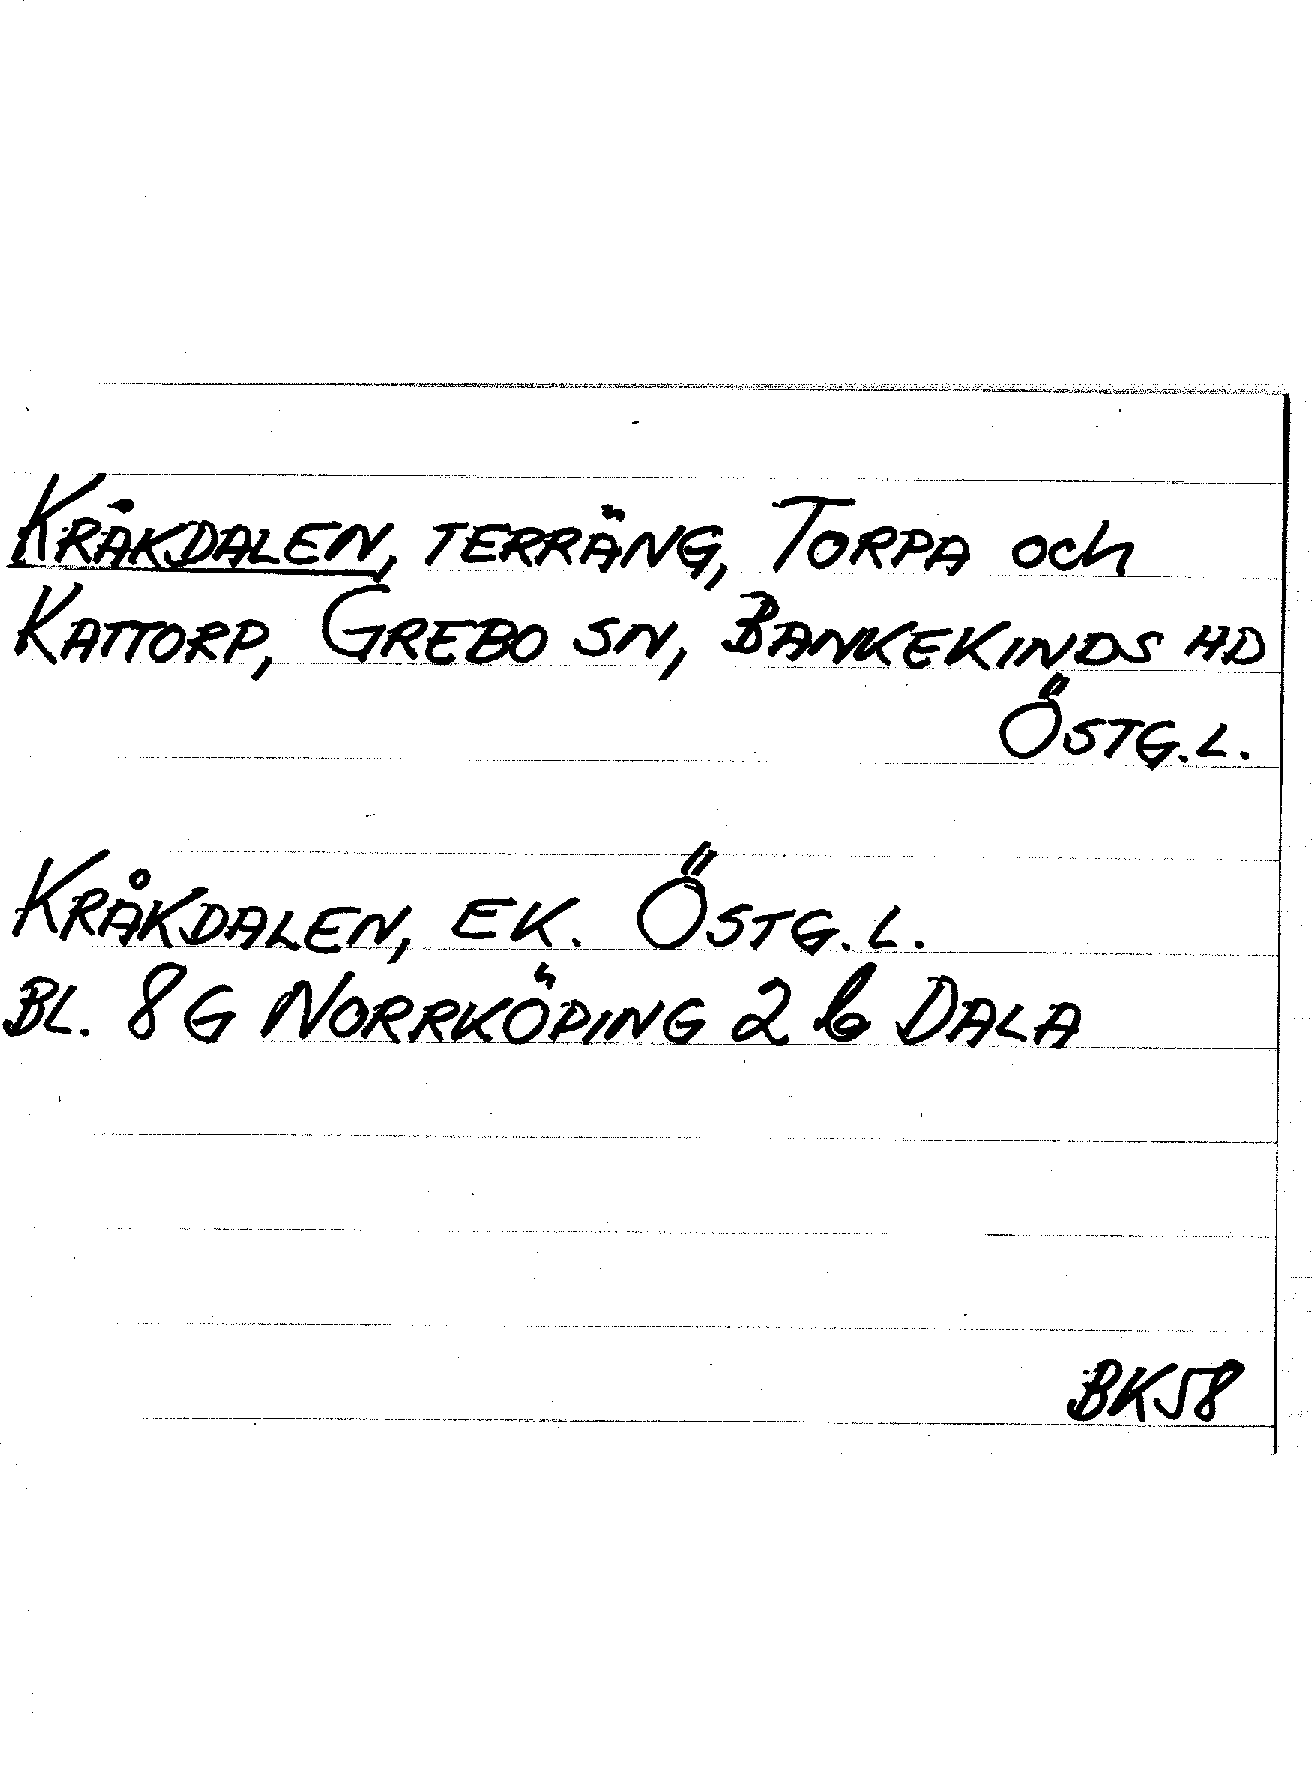 KRÅKDALEN, TERRÄNG, TORPA och
KATTORP, GREBO SN, BANKEKINDS HD
ÖSTG.L.
KRÅKDALEN, EK. ÖSTG.L.
BL. 8G NORRKÖPING 2 b DALA
BK58